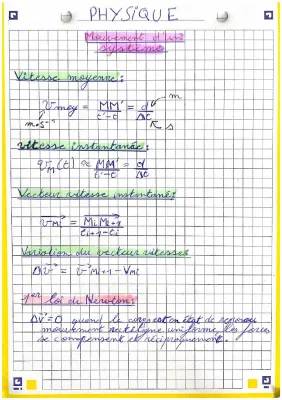 PHYSIQUE
Mouvement d'un
système
Vitesse moyenne :
Vmoy = MM'/t'-t = d/Δt
m
m.s⁻¹
s
vitesse instantanée :
VM(t) ≈ MM'/t'-t = d/Δt
Vecteur vitesse instantané :
VMi = MiMi+1/ti+1-ti
Variation du vecteur vitesses
ΔV = VMi+1 - VMi
1ère loi de Newton :
ΔV = 0 quand le corps est en état de repos ou
mouvement rectiligne uniforme, les forces
se compensent et réciproquement.